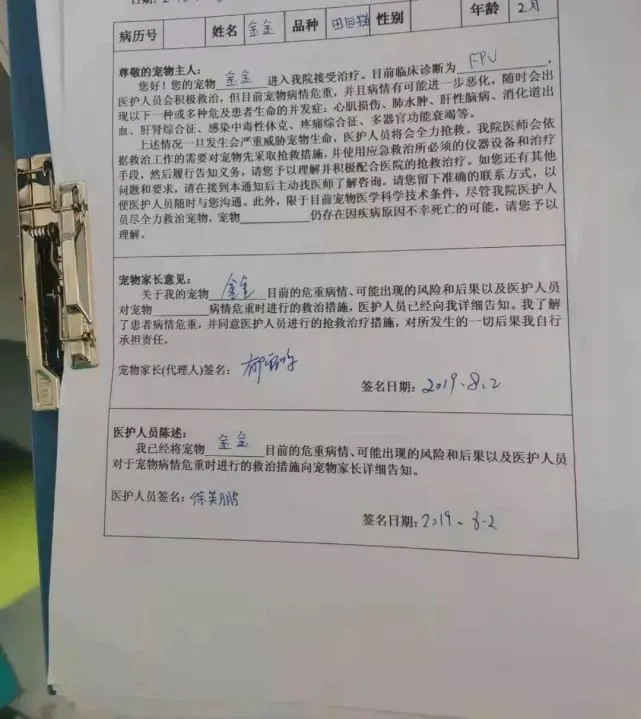 病历号 姓名 金金 品种 田园猫 性别 年龄 2月
尊敬的宠物主人：
您好！您的宠物 金金 进入我院接受治疗。目前临床诊断为 FPV ，
医护人员会积极救治，但目前宠物病情危重，并且病情有可能进一步恶化，随时会出
现以下一种或多种危及患者生命的并发症：心肌损伤、肺水肿、肝性脑病、消化道出
血、肝肾综合征、感染中毒性休克、疼痛综合征、多器官功能衰竭等。
上述情况一旦发生会严重威胁宠物生命，医护人员将会全力抢救。我院医师会依
据救治工作的需要对宠物先采取抢救措施，并使用应急救治所必须的仪器设备和治疗
手段，然后履行告知义务，请您予以理解并积极配合医院的抢救治疗。如您还有其他
问题和要求，请在接到本通知后主动找医师了解咨询。请您留下准确的联系方式，以
便医护人员随时与您沟通。此外，限于目前宠物医学科学技术条件，尽管我院医护人
员尽全力救治宠物，宠物________仍存在因疾病原因不幸死亡的可能，请您予以
理解。
宠物家长意见：
关于我的宠物 金金 目前的危重病情、可能出现的风险和后果以及医护人员
对宠物________病情危重时进行的救治措施，医护人员已经向我详细告知。我了解
了患者病情危重，并同意医护人员进行的抢救治疗措施，对所发生的一切后果我自行
承担责任。
宠物家长(代理人)签名：
签名日期：2019.8.2
医护人员陈述：
我已经将宠物 金金 目前的危重病情、可能出现的风险和后果以及医护人员
对于宠物病情危重时进行的救治措施向宠物家长详细告知。
医护人员签名：徐英鹏
签名日期：2019.8.2